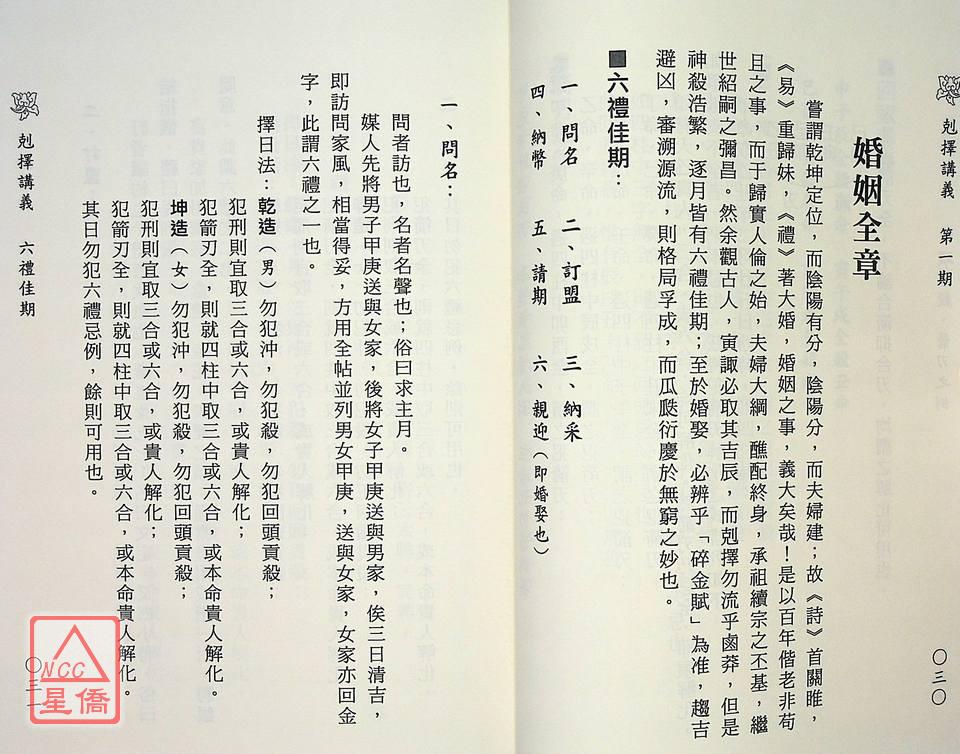 剋擇講義　第一期
〇三〇
婚姻全章
嘗謂乾坤定位，而陰陽有分，陰陽分，而夫婦建；故《詩》首關睢，
《易》重歸妹，《禮》著大婚，婚姻之事，義大矣哉！是以百年偕老非苟
且之事，而于歸實人倫之始，夫婦大綱，醮配終身，承祖續宗之丕基，繼
世紹嗣之彌昌。然余觀古人，寅諏必取其吉辰，而剋擇勿流乎鹵莽，但是
神殺浩繁，逐月皆有六禮佳期；至於婚娶，必辨乎「碎金賦」為准，趨吉
避凶，審溯源流，則格局孚成，而瓜瓞衍慶於無窮之妙也。
■六禮佳期：
一、問名　二、訂盟　三、納采
四、納幣　五、請期　六、親迎（即婚娶也）
一、問名：
問者訪也，名者名聲也；俗曰求主月。
媒人先將男子甲庚送與女家，後將女子甲庚送與男家，俟三日清吉，
即訪問家風，相當得妥，方用全帖並列男女甲庚，送與女家，女家亦回金
字，此謂六禮之一也。
擇日法：乾造（男）勿犯沖，勿犯殺，勿犯回頭貢殺；
犯刑則宜取三合或六合，或貴人解化；
犯箭刃全，則就四柱中取三合或六合，或本命貴人解化。
坤造（女）勿犯沖，勿犯殺，勿犯回頭貢殺；
犯刑則宜取三合或六合，或貴人解化；
犯箭刃全，則就四柱中取三合或六合，或本命貴人解化。
其日勿犯六禮忌例，餘則可用也。
剋擇講義　六禮佳期
〇三一
NCC
星僑